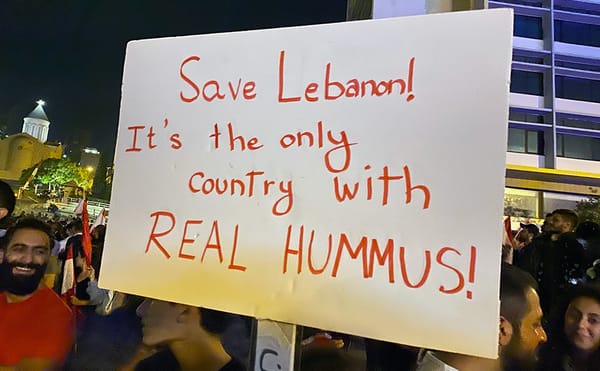 Save Lebanon!
It's the only
country with
REAL HUMMUS!